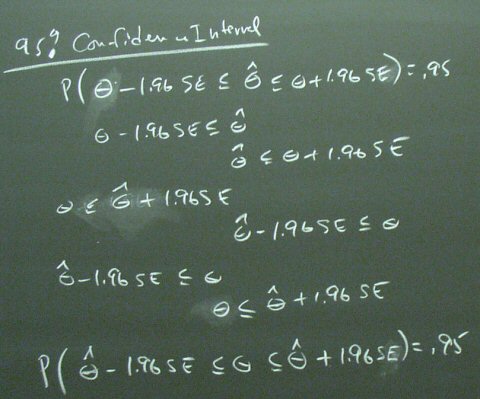 95% Confidence Interval
P(θ - 1.96 SE ≤ θ̂ ≤ θ + 1.96 SE) = .95
θ - 1.96 SE ≤ θ̂
θ̂ ≤ θ + 1.96 SE
θ ≤ θ̂ + 1.96 SE
θ̂ - 1.96 SE ≤ θ
θ̂ - 1.96 SE ≤ θ
θ ≤ θ̂ + 1.96 SE
P(θ̂ - 1.96 SE ≤ θ ≤ θ̂ + 1.96 SE) = .95